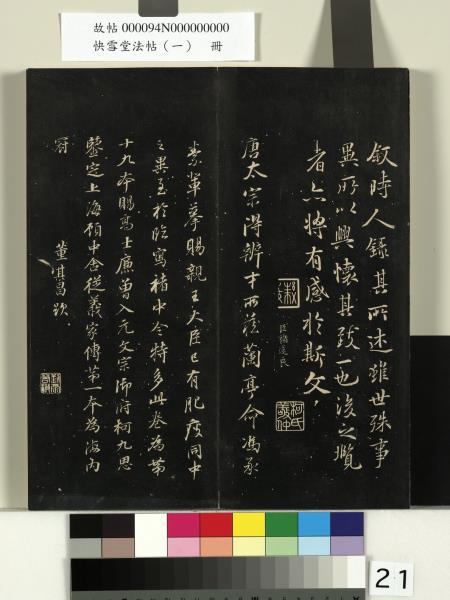 故帖 000094N000000000
快雪堂法帖（一） 冊
叙時人錄其所述雖世殊事
異所以興懷其致一也後之攬
者亦將有感於斯文
臣褚遂良
柯氏義仲
唐太宗得辨才所藏蘭亭命馮承
素輩摹賜親王大臣已有肥瘦同中
之異至於臨寫褚中令特多此卷為第
十九本賜高士廉曾入元文宗御府柯九思
鑒定上海顧中舍從義家傳第一本為海內
冠
董其昌跋
21